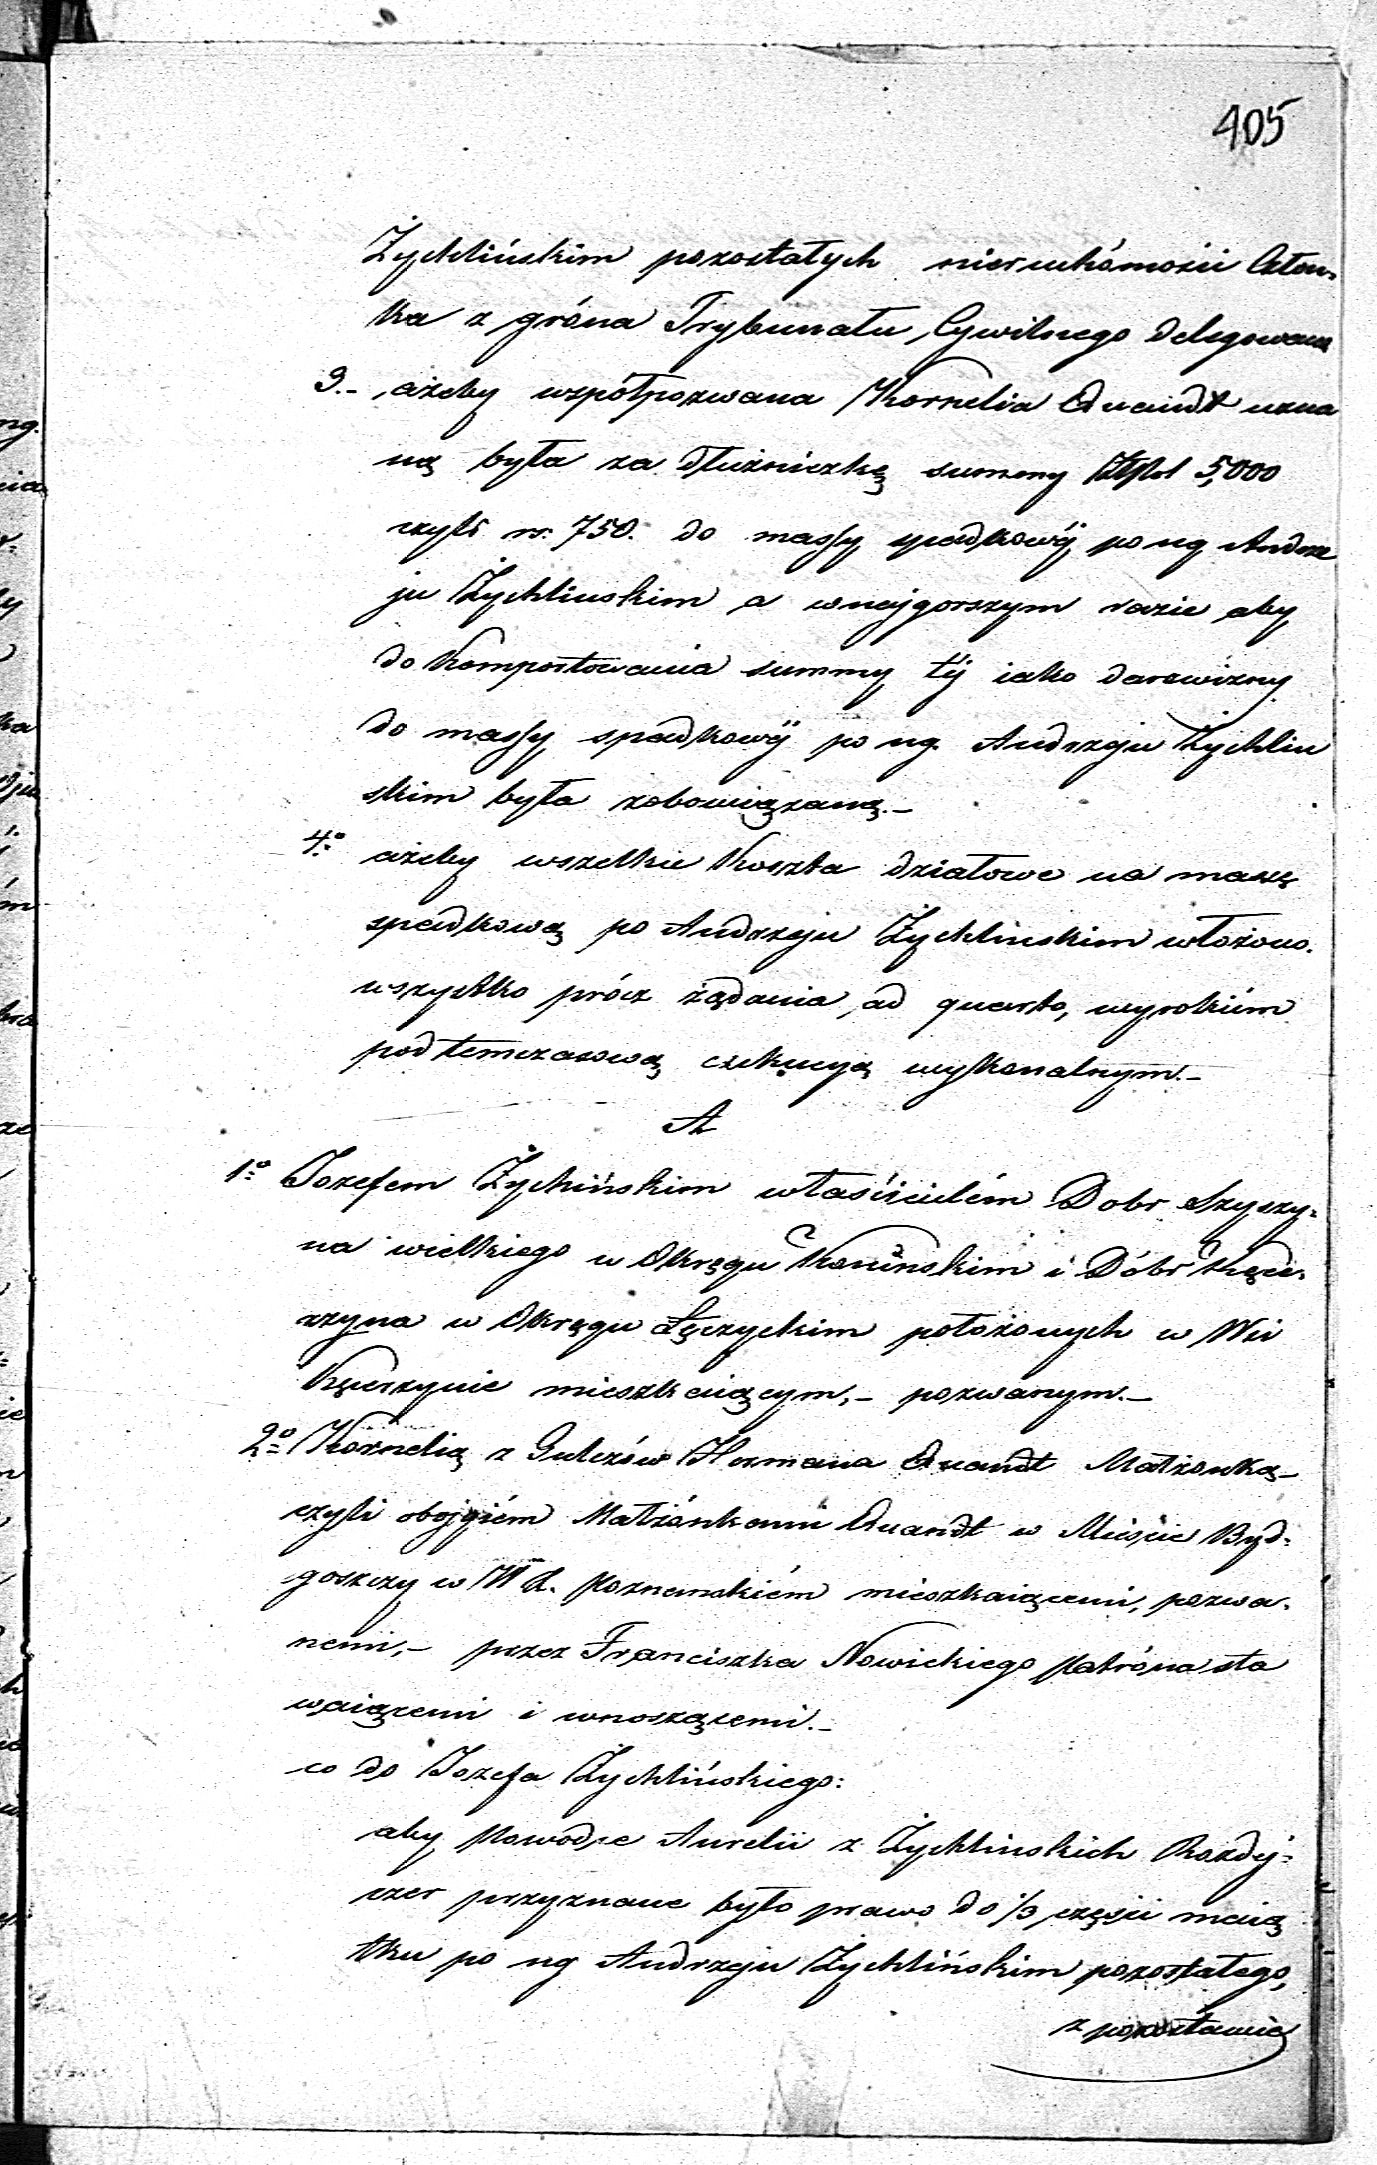 405
Żychlińskim pozostałych nieruchómości Człon-
ka z gróna Trybunału Cywilnego delegowana
3.- ażeby wspołpozwana Kornelia Quandt uzna
ną była za dłużniczkę summy Złpol 5,000
czyli rs. 750. do massy spadkowéj po ng Andrze
ju Żychlinskim a wnajgorszym razie aby
do komportowania summy téj iako darowizny
do massy spadkowéj po ng. Andrzeju Żychlin
skim była zobowiązaną.-
4.o ażeby wszelkie koszta działowe na massę
spadkową po Andrzeju Żychlinskim włożono.
wszystko prócz żądania ad quarto, wyrokiém
pod temczasową exekucyą wykonalnym.-
A
1.o Jozefem Żychińskim właścicielém Dobr Szyszy-
na wielkiego w Okręgu Konińskim i Dóbr Kęcer-
rzyna w Okręgu Łęczyckim położonych w Wsi
Kęcerzynie mieszkaiącym,- pozwanym.-
2.o Kornelią z Gulczów Hermana Quandt Małżonką-
czyli obojgiém Małżónkami Quandt w Mieście Byd-
goszczy w W X. Poznanskiém mieszkaiącemi, pozwa-
nemi,- przez Franciszka Nowickiego Patróna sta
waiącemi i wnoszącemi.-
co do Jozefa Żychlińskiego:
aby Powodce Aurelii z Żychlinskich Rozdéj-
czer przyznane było prawo do 1/3 części maią
tku po ng Andrzeju Żychlińskim pozostałego,
z pozostawie